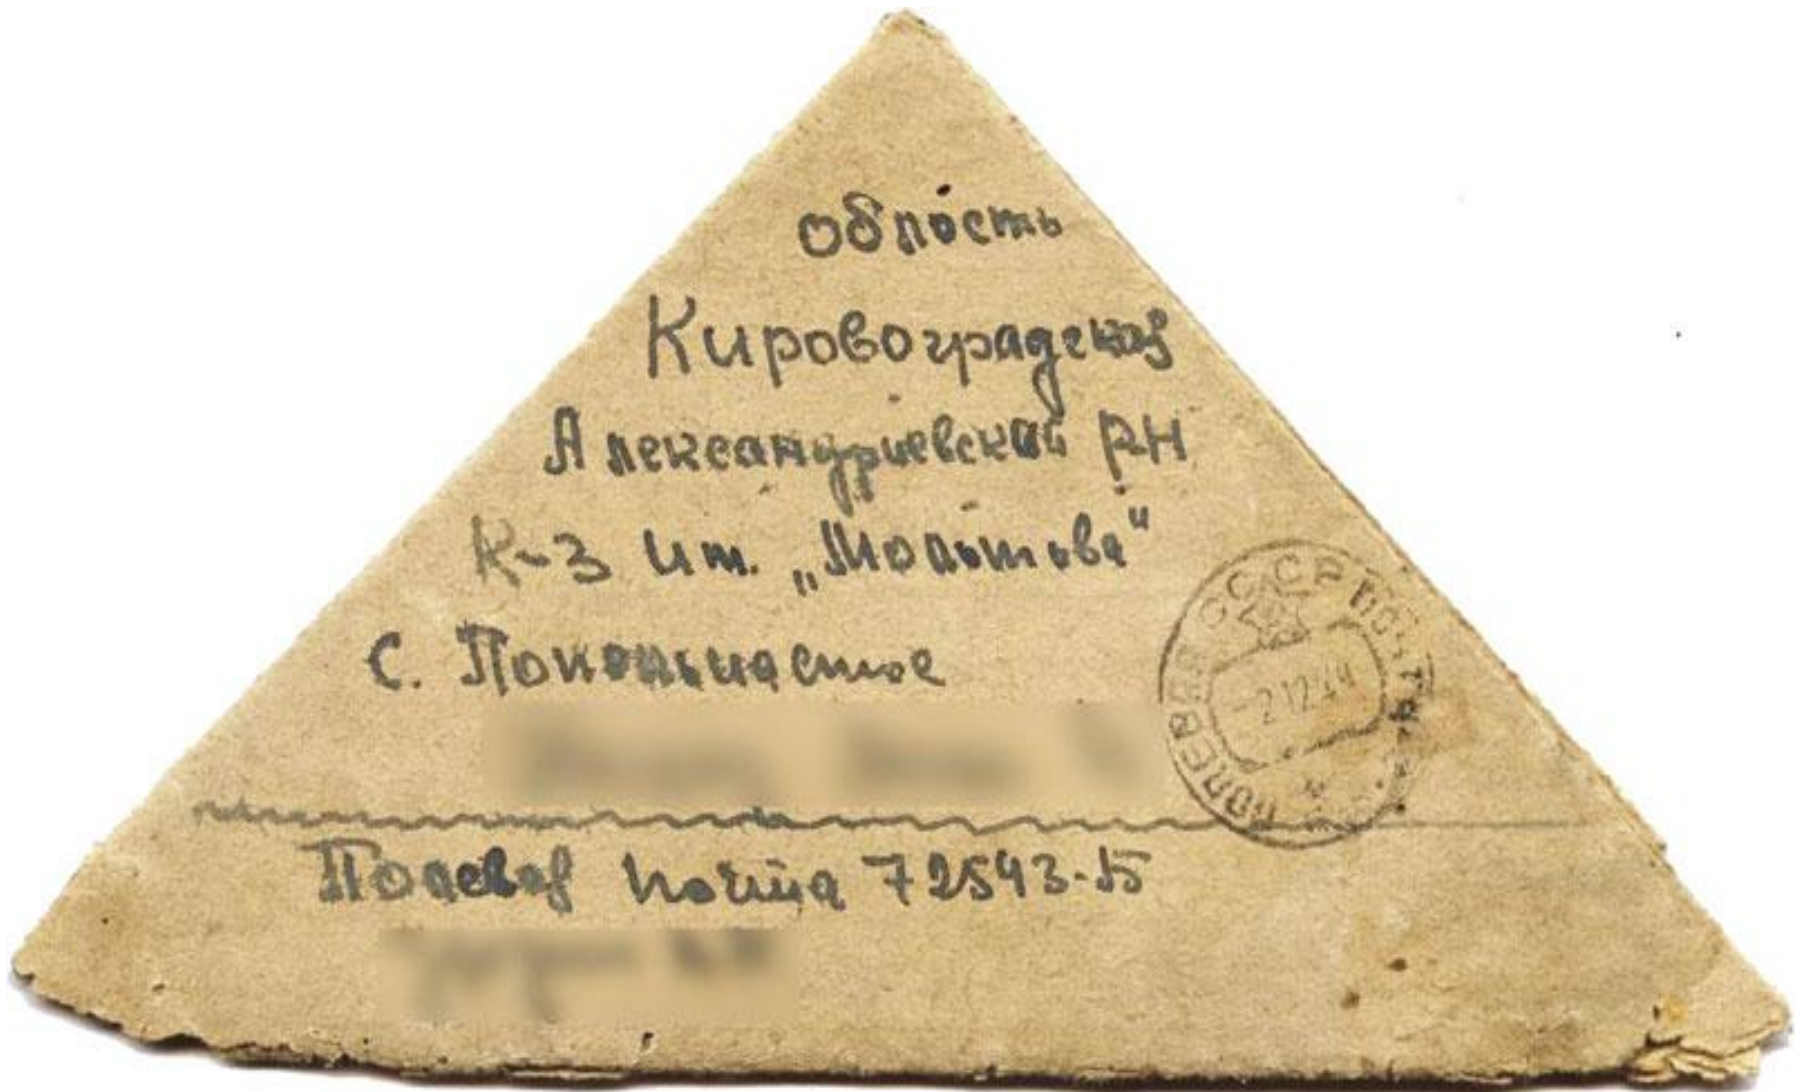 область
Кировоградская
Александриевский РН
К-З им. „Молотова“
С.
СССР ПОЧТА ПОЛЕВАЯ
-2 12 44
Полевая почта 72543-Б